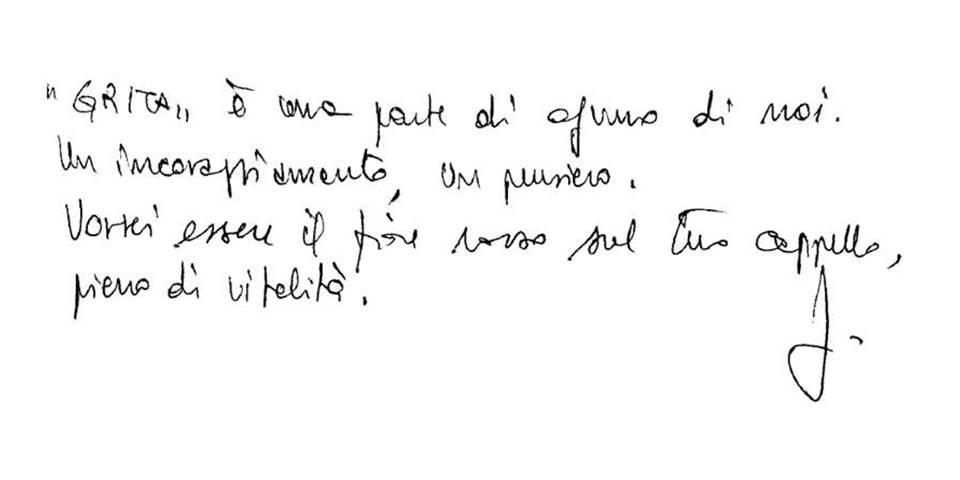 "GRITA„ è una parte di ognuno di noi.
Un incoraggiamento, un pensiero.
Vorrei essere il fiore rosso sul tuo cappello,
pieno di vitalità.
J.